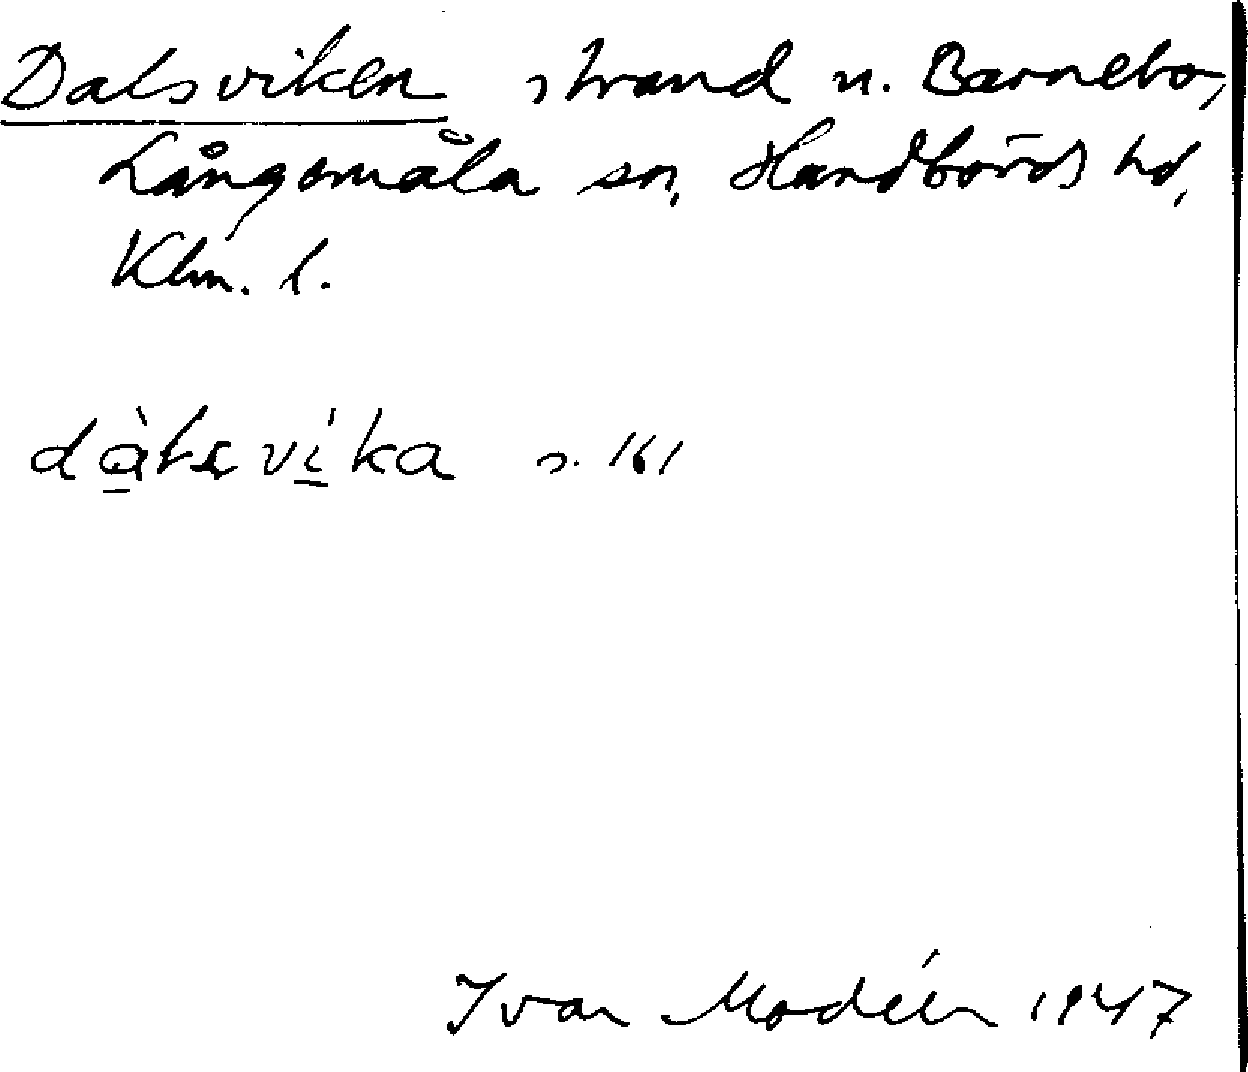 Dalsviken strand u. Barnebo,
Långemåla sn, Handbörds hd,
Klm. l.
s. 161
Ivar Modéer 1947